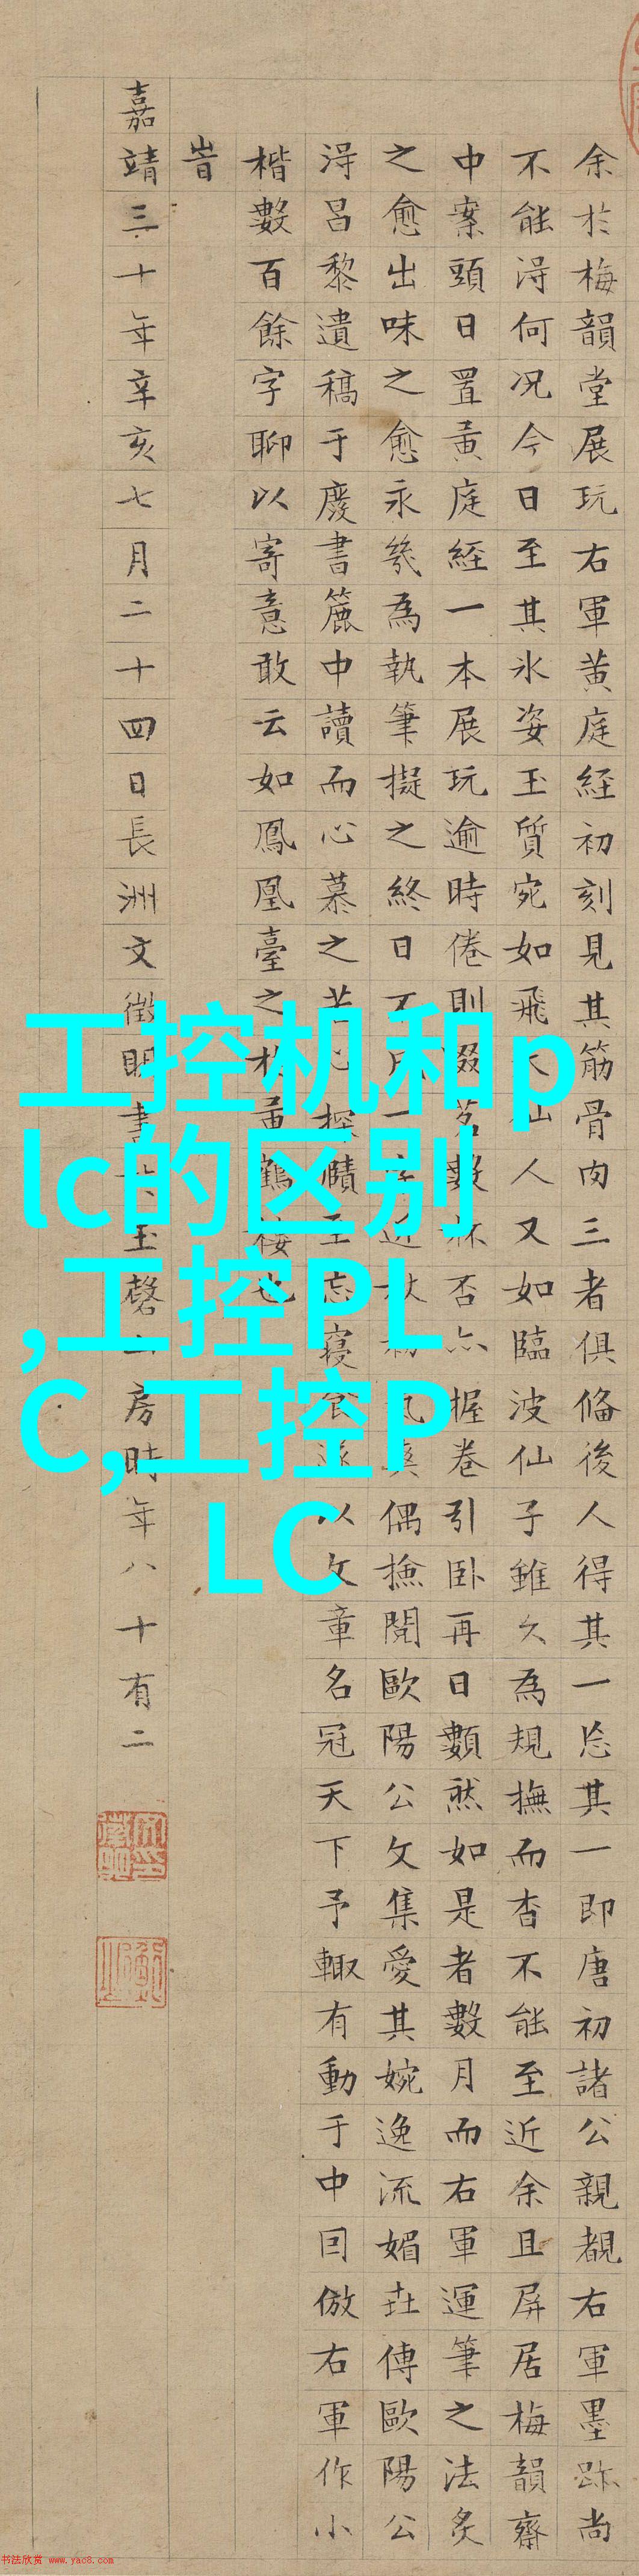 余於梅韻堂展玩右軍黄庭經初刻見其筋骨肉三者俱俻後人得其一忘其一即唐初諸公親覩右軍墨跡尚
不能淂何况今日至其氷姿玉質宛如飛仙人又如臨波仙子雖久為規撫而杳不能至近余且屏居梅韻齋
中案頭日置黄庭經一本展玩逾時倦則啜茗數杯否亦握卷引卧再日數然如是者數月而右軍運筆之法炙
之愈出味之愈永幾為執筆擬之終日不成一字近秋初真偶撿閲歐陽公文集愛其婉逸流媚傳歐陽公
淂吕黎遺稿于廢書簏中讀而心慕之苦心探賾至忘寢食遂以文章名冠天下予輙有動于中囙倣右軍作小
楷數百餘字聊以寄意敢云如鳳凰臺之於黄鶴楼也
峕
嘉靖三十年辛亥七月二十四日長洲文徵明書於玉磬山房時年八十有二
工控机和p
lc的区别
,工控PL
C,工控P
LC
书法欣赏 www.yac8.com